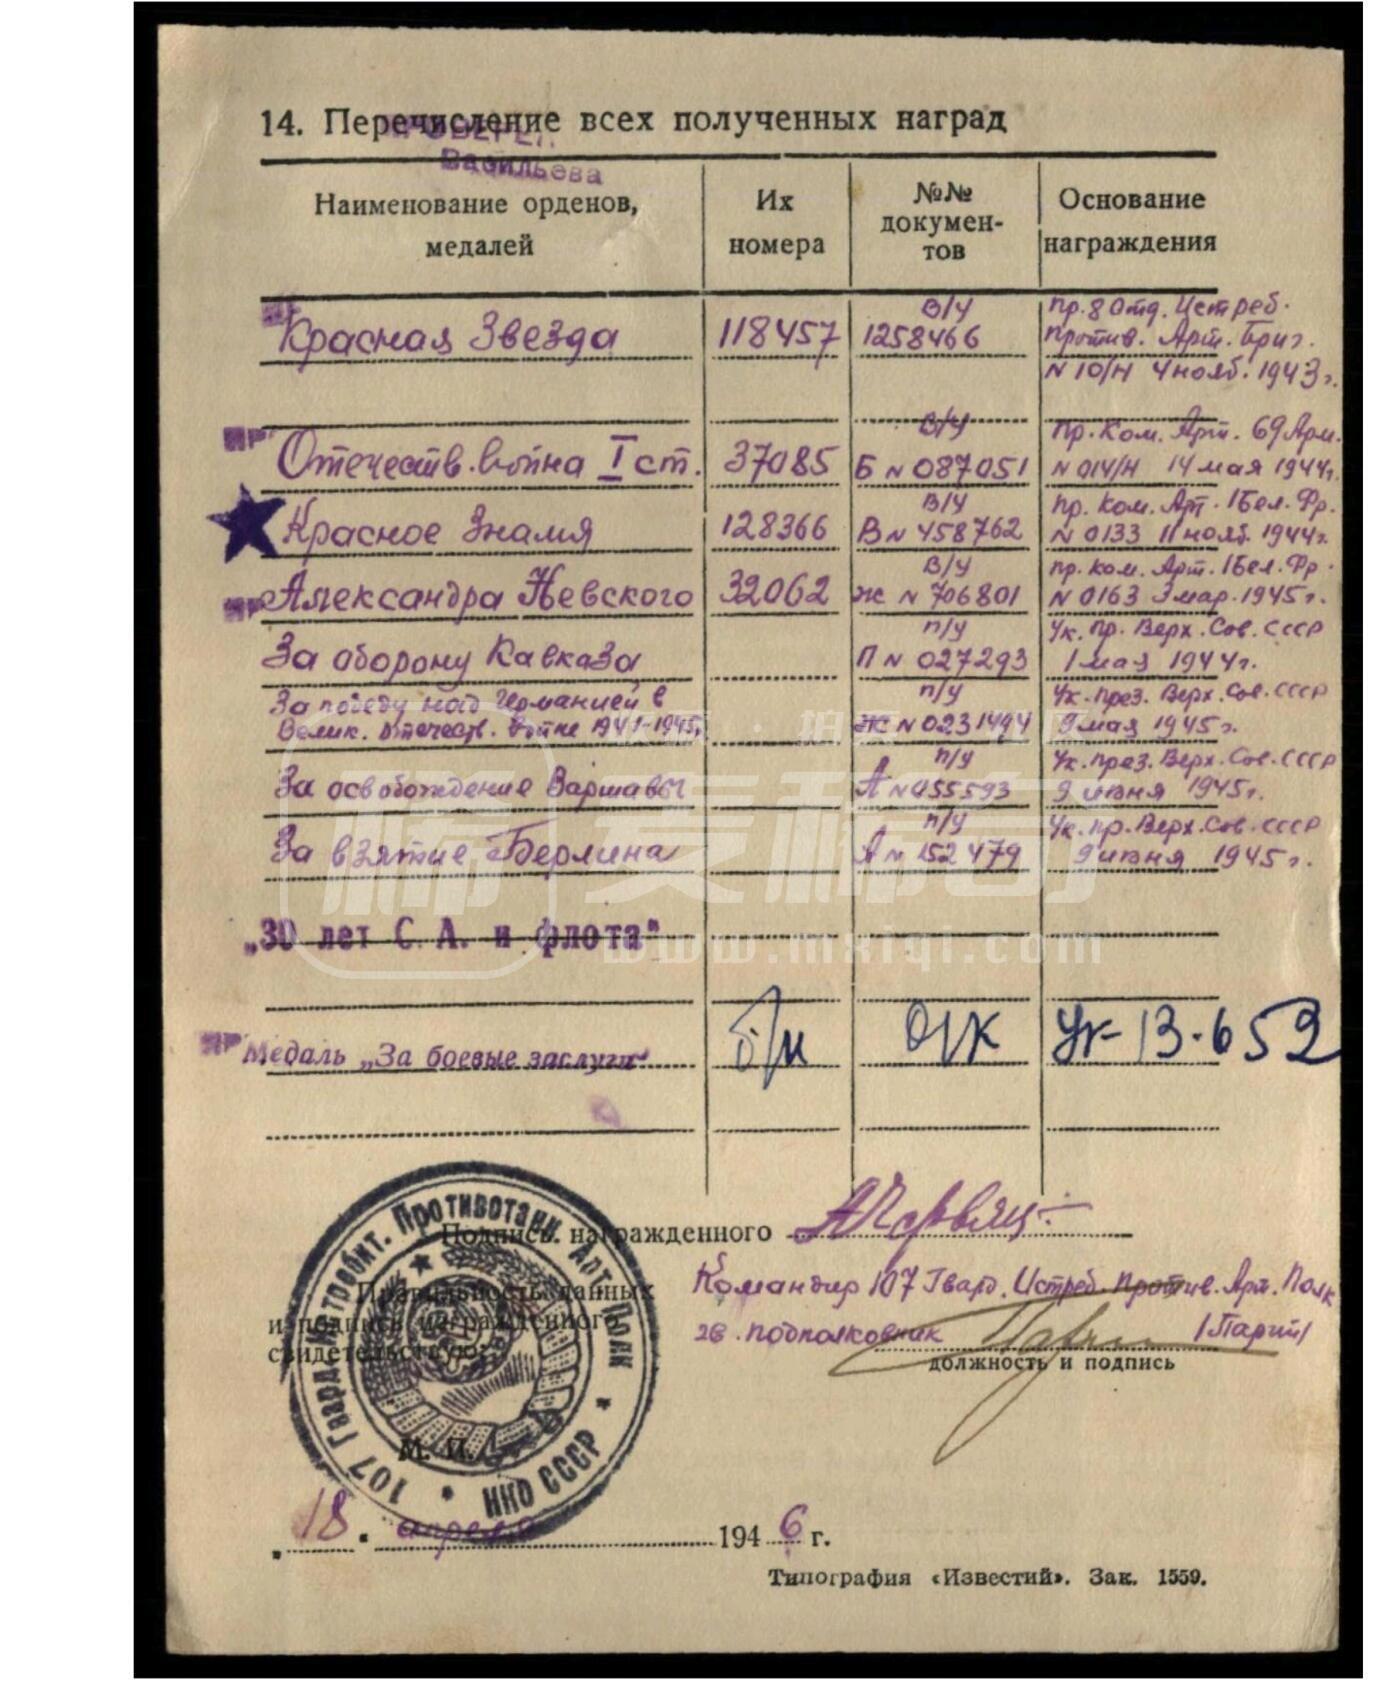 14. Перечисление всех полученных наград
Васильева
Наименование орденов,
медалей
Их
номера
№№
докумен-
тов
Основание
награждения
Красная Звезда
118457
В/У
1258466
Пр. 8 Отд. Истреб.
Против. Арт. Бриг.
N 10/Н 4 нояб. 1943 г.
Отечеств. война I ст.
37085
В/У
Б N 087051
Пр. Ком. Арт. 69 Арм.
N 014/Н 14 мая 1944 г.
Красное Знамя
128366
В/У
В N 458762
Пр. Ком. Арт. 1 Бел. Фр.
N 0133 11 нояб. 1944 г.
Александра Невского
32062
В/У
Ж N 706801
Пр. Ком. Арт. 1 Бел. Фр.
N 0163 3 мар. 1945 г.
За оборону Кавказа
П/У
П N 027293
Ук. Пр. Верх. Сов. СССР
1 мая 1944 г.
За победу над Германией в
Велик. Отечеств. Войне 1941-1945г.
П/У
Ж N 0231494
Ук. През. Верх. Сов. СССР
9 мая 1945 г.
За освобождение Варшавы
П/У
А N 055593
Ук. През. Верх. Сов. СССР
9 июня 1945 г.
За взятие Берлина
П/У
А N 152479
Ук. Пр. Верх. Сов. СССР
9 июня 1945 г.
„30 лет С. А. и флота"
Медаль „За боевые заслуги"
б/н
О/К
Ук-13-652
稀 麦稀奇
www.mxiqi.com
Подпись награжденного
Правильность данных
и подпись награжденного
свидетельствую:
Командир 107 Гвард. Истреб. Против. Арт. Полк
гв. подполковник
должность и подпись
107 Гвард. Истребит. Противотанк. Арт. Полк
НКО СССР
М. П.
„18" апреля 1946 г.
Типография «Известий». Зак. 1559.